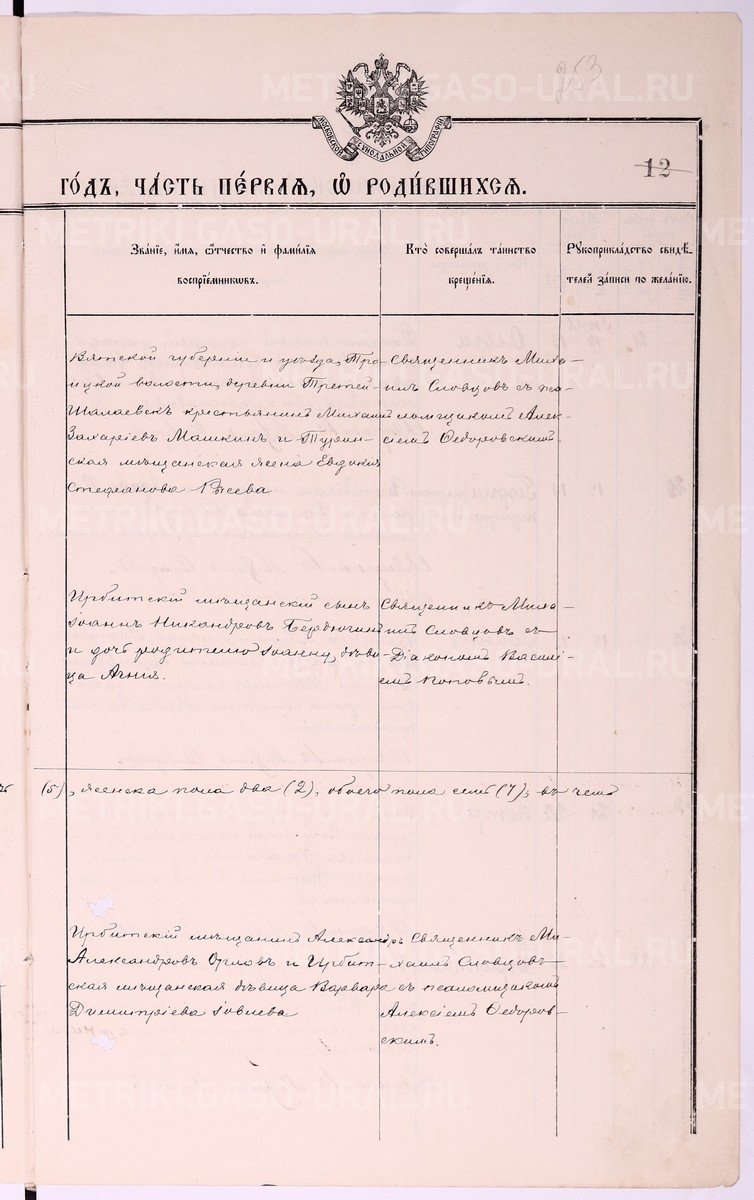 253
МОСКОВСКОЙ СѴНОДАЛЬНОЙ ТИПОГРАФІИ
12
ГО́ДЪ, ЧА́СТЬ ПЕ́РВАЯ, Ѽ РОДИ́ВШИХСЯ.
Зва́нїе, и҆́мя, ѻ҆́тчество и҆ фами́лїя
воспрїе́мникѡвъ.
Кто̀ соверша́лъ та́инство
креще́нїя.
Рꙋкоприкла́дство свидѣ́-
телей за́писи по жела́нїю.
Вятской губерніи и уѣзда, Тро-
ицкой волости, деревни Третей-
Шалаевскъ крестьянинъ Михаилъ
Захаріевъ Машкинъ и Турин-
ская мѣщанская жена Евдокія
Стефанова
Священникъ Миха-
илъ Словцовъ съ пса-
ломщикомъ Алек-
сіемъ Ѳедоровскимъ.
Ирбитскій мѣщанскій сынъ
Іоаннъ Никандровъ Бердюгинъ
и дочь родителю Іоанну, дѣви-
ца Агнія.
Священникъ Миха-
илъ Словцовъ съ
Діакономъ Василі-
емъ Поповымъ.
(5), женска пола два (2), обоего пола семь (7), въ чемъ
Ирбитскій мѣщанинъ Александръ
Александровъ Орловъ и Ирбит-
ская мѣщанская дѣвица Варвара
Димитріева Іовлева
Священникъ Ми-
хаилъ Словцовъ
съ псаломщикомъ
Алексіемъ Ѳедоров-
скимъ.
METRIKI.GASO-URAL.RU